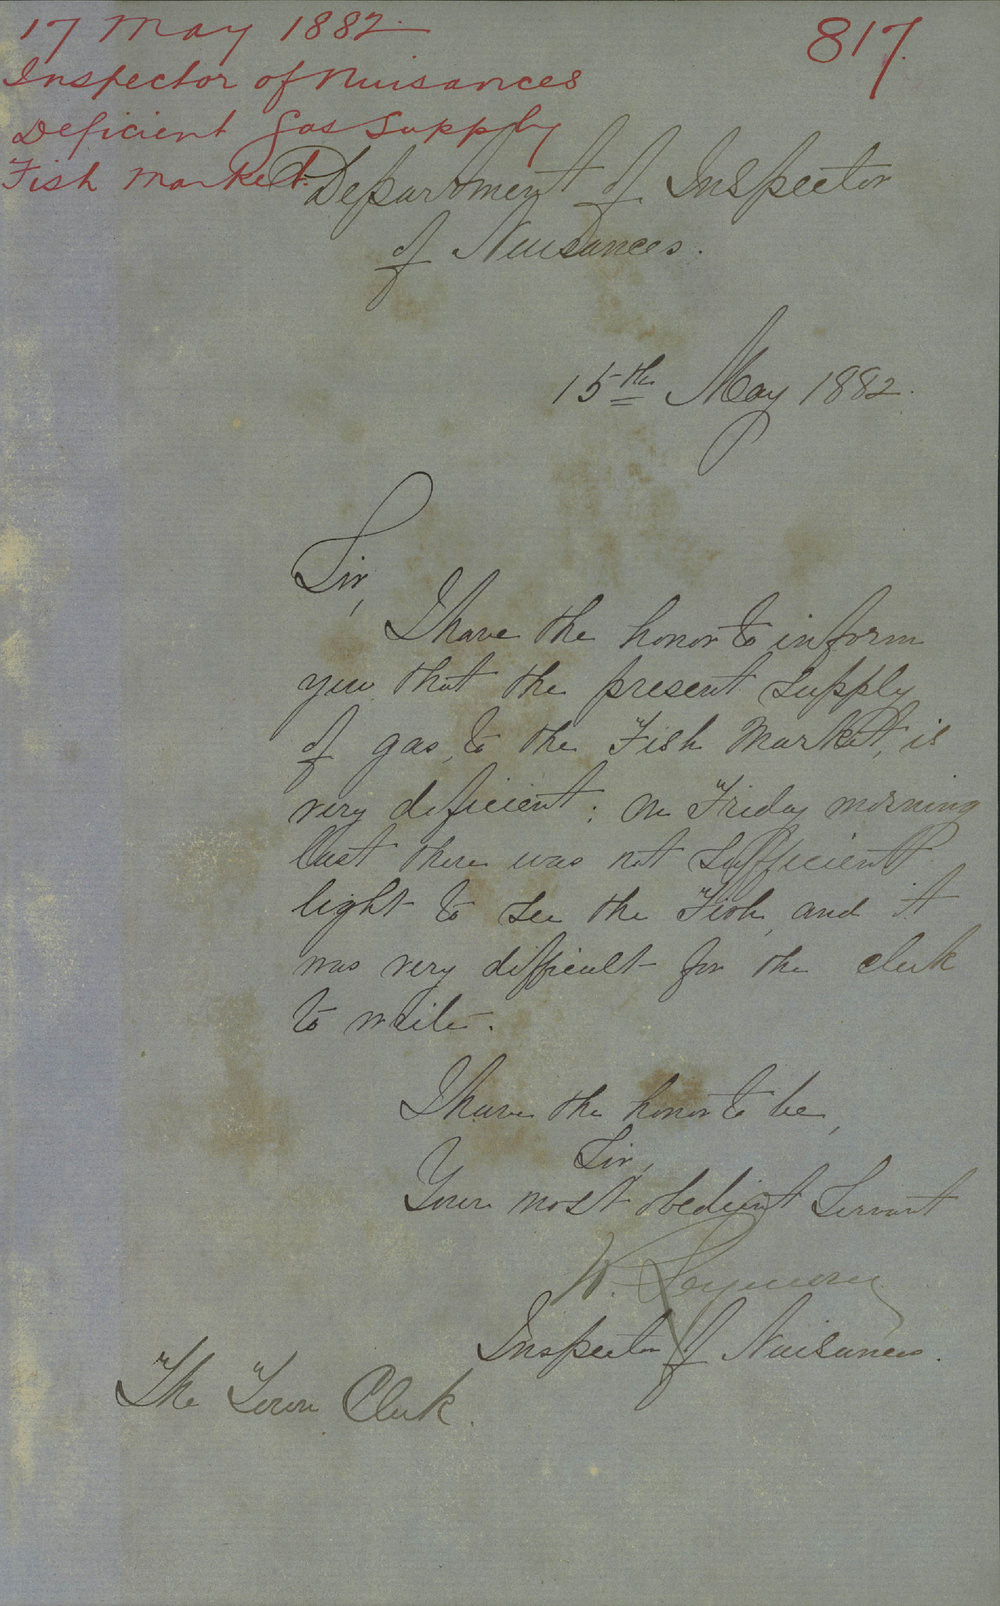 17 May 1882
817.
Inspector of Nuisances
Deficient Gas Supply
Fish Market.
Department of Inspector
of Nuisances.
15th May 1882.
Sir,
I have the honor to inform
you that the present supply
of gas, to the Fish Market, is
very deficient: on Friday morning
last there was not sufficient
light to see the Fish, and it
was very difficult for the clerk
to write.
I have the honor to be,
Sir,
Your most obedient Servant
W. Seymour
Inspector of Nuisances.
The Town Clerk.